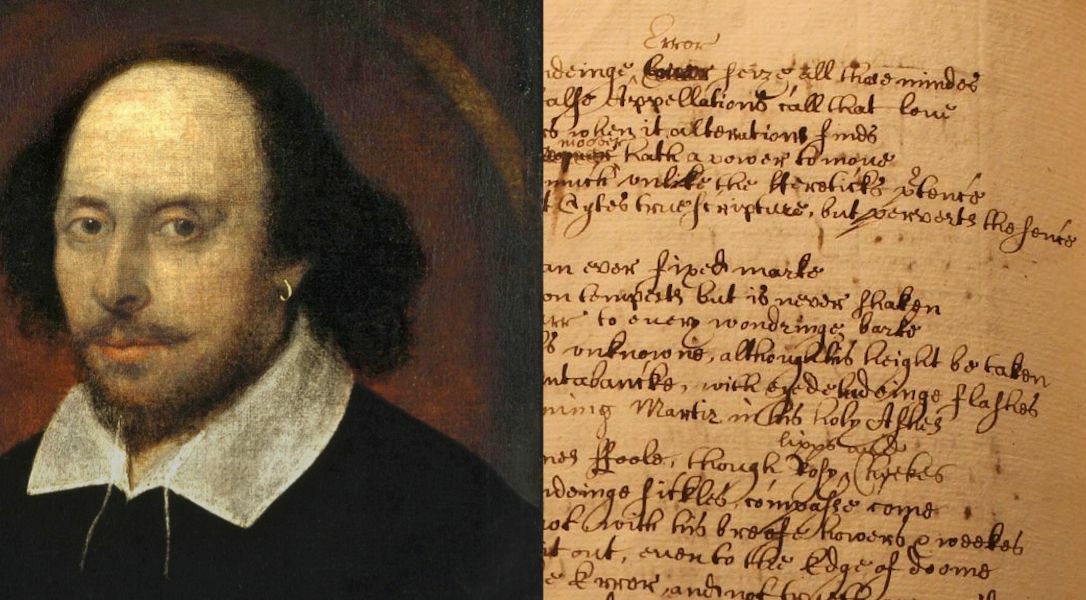 Error
indeinge seize all those mindes
alse Appellations call that loue
rs when it alterations finds
moouer
hath a power to moue
much vnlike the Hereticks ptence
t Cytes true scripture, but perverts the sence
an ever fixed marke
on tempests but is never shaken
arr to euery wondringe barke
s vnknowne, although his height be taken
ntabancke, with eyedeludeinge flashes
ning Martir in his holy Ashes
lipps and
mes ffoole, though Rosy Cheekes
ndeinge sickles, compasse come
not with his breife howers & weekes
t out, even to the Edge of doome
e Error, and not